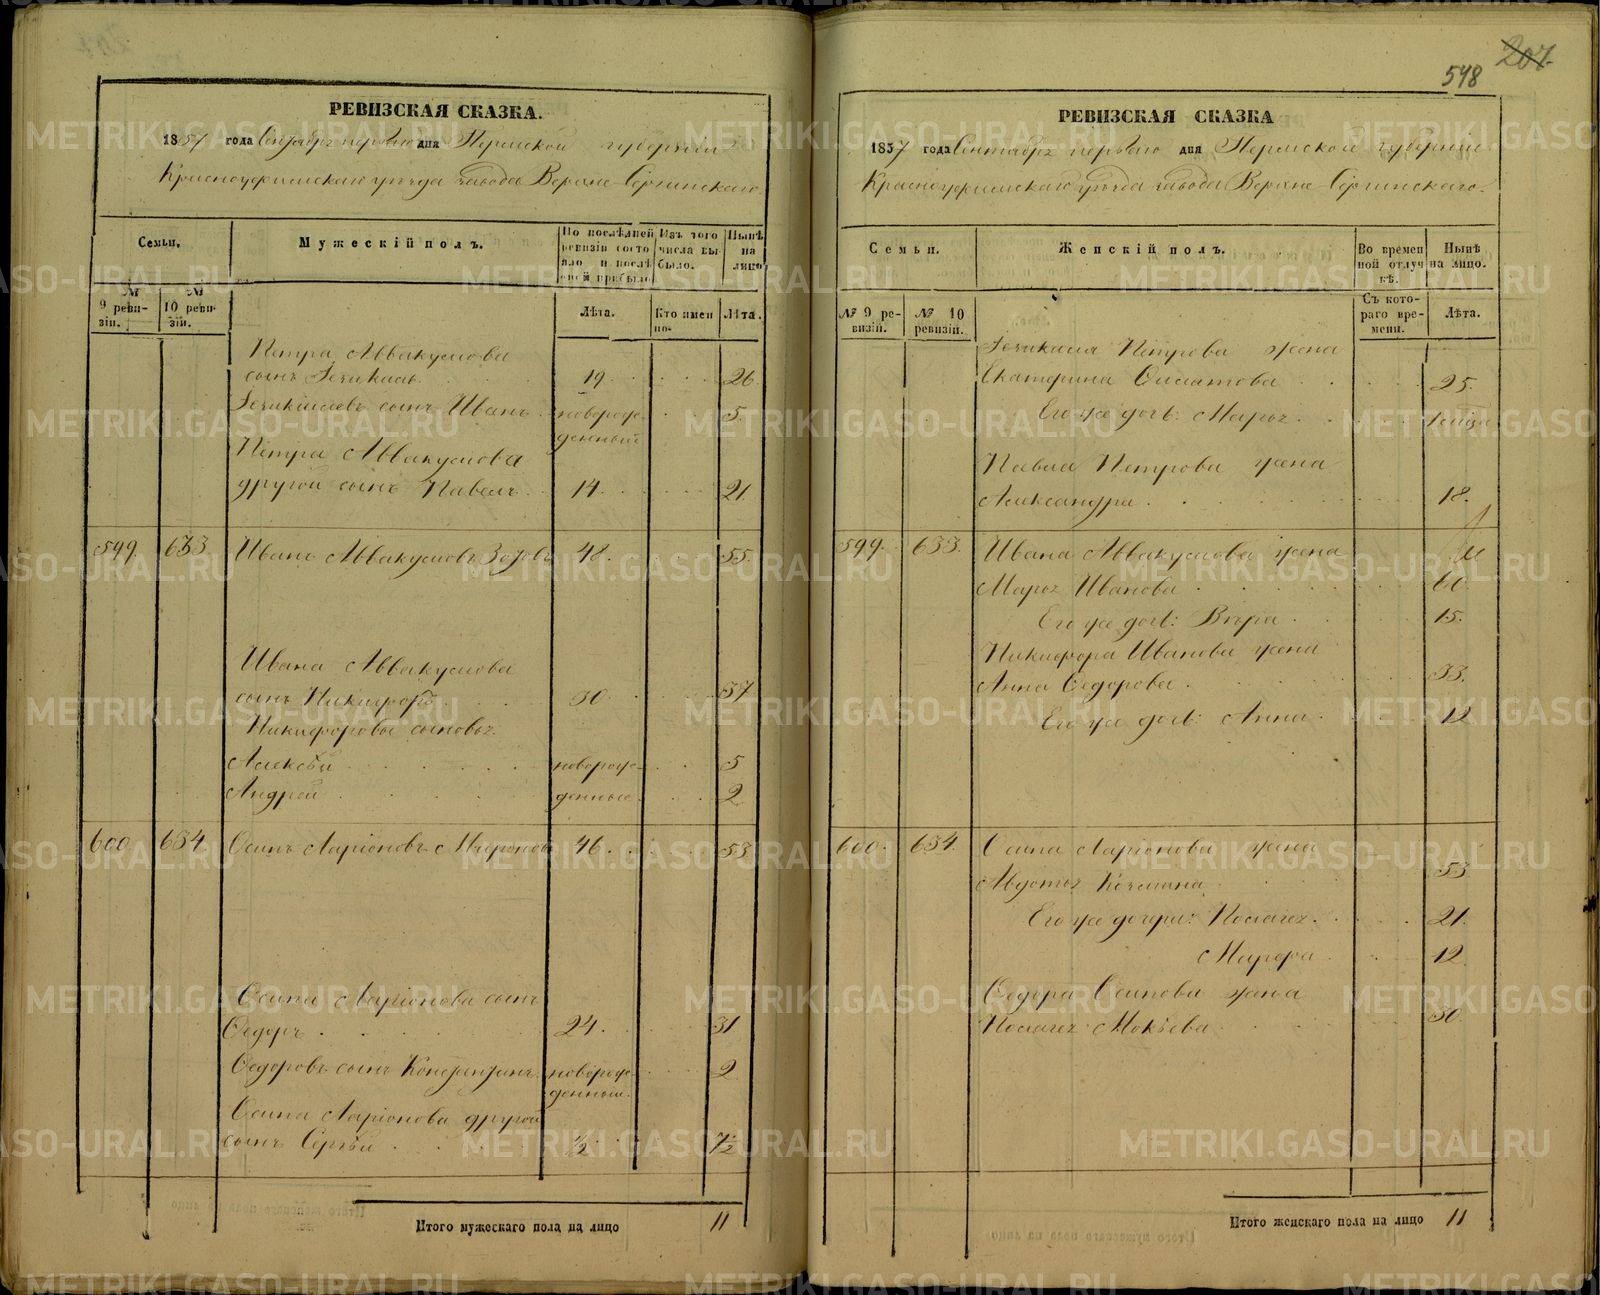 207.
548
РЕВИЗСКАЯ СКАЗКА.
1857 года Сентября первого дня Пермской губернии
Красноуфимскаго уѣзда завода Верхне-Сергинскаго.
Семьи.
Мужескій полъ.
По послѣдней ревизіи состояло и послѣ оной прибыло.
Изъ того числа выбыло.
Нынѣ на лицо
№ 9 ревизіи.
№ 10 ревизіи.
Лѣта.
Кто имен но.
Лѣта.
Петра Аввакумова
сынъ 19 26
сынъ Иванъ новорож- 5
денный
Петра Аввакумова
другой сынъ Павелъ 14. 21.
599. 633. Иванъ Аввакумовъ Зоговъ 48. 55.
Ивана Аввакумова
сынъ Никифоръ 30 37
Никифоровы сыновья
Алексѣй новорож- 5
Андрей денные 2
600 634 Осипъ Ларіоновъ 46. 53
Осипа Ларіонова сынъ
Ѳедоръ 24. 31
Ѳедоровъ сынъ Константинъ новорож- 2
денный.
Осипа Ларіонова другой
сынъ Сергѣй ½ 7½
Итого мужескаго пола на лицо 11
РЕВИЗСКАЯ СКАЗКА
1857 года Сентября первого дня Пермской губерніи
Красноуфимскаго уѣзда завода Верхне-Сергинскаго.
Семьи.
Женскій полъ.
Во времен ной отлуч кѣ.
Нынѣ на лицо.
№ 9 ревизіи.
№ 10 ревизіи.
Съ котораго времени.
Лѣта.
Петрова жена
Екатерина 25.
Его же доч: Марья
Павла Петрова жена
Александра 18.
599. 633. Ивана Аввакумова жена
Марья Иванова 60.
Его же доч: Вѣра 15.
Никифора Иванова жена
Анна Ѳедорова 33.
Его же доч: Анна 12
600. 634. Осипа Ларіонова жена
Авдотья 53
Его же дочери: Пелагея 21.
Марфа 12
Ѳедора Осипова жена
Пелагея Мокѣева 30
Итого женскаго пола на лицо 11
METRIKI.GASO-URAL.RU